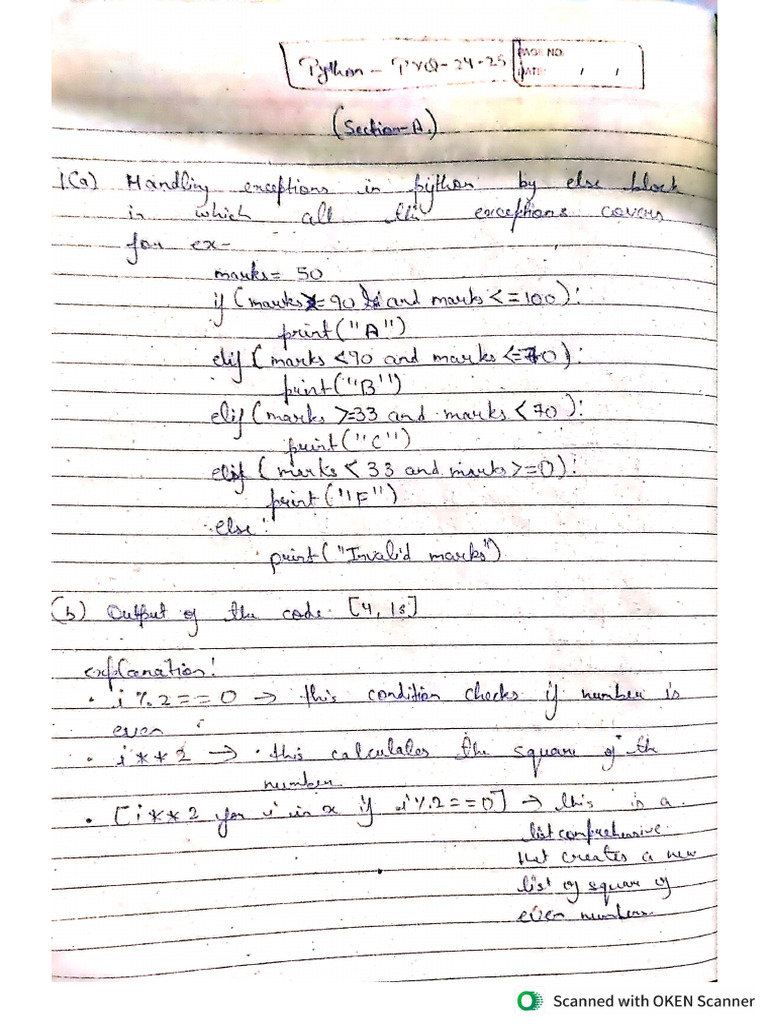 Python - PYQ-24-25
PAGE NO.
DATE: / /
(Section-A.)
1.(a) Handling exceptions in python by else block
in which all the exceptions covers
for ex-
marks= 50
if (marks>=90 and marks <=100):
print("A")
elif (marks <90 and marks <=70):
print("B")
elif (marks >=33 and marks < 70):
print("C")
elif (marks < 33 and marks >=0):
print("F")
else:
print("Invalid marks")
(b) Output of the code. [4, ]
explanation:
• i%2==0 → this condition checks if number is
even
• i**2 → this calculates the square of the
number.
• [i**2 for i in x if i%2==0] → this is a
list comprehensive
that creates a new
list of square of
even numbers.
Scanned with OKEN Scanner